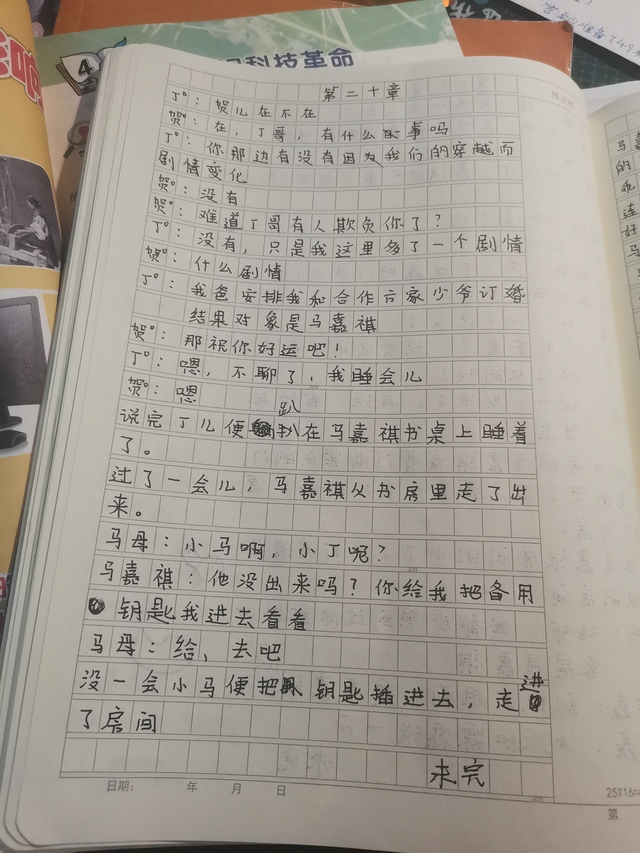 4
科技革命
第二十章
丁°：贺儿在不在
贺°：在，丁哥，有什么事吗
丁°：你那边有没有因为我们的穿越而
剧情变化
贺°：没有
贺°：难道丁哥有人欺负你了？
丁°：没有，只是我这里多了一个剧情
贺°：什么剧情
丁°：我爸安排我和合作方家少爷订婚
结果对象是马嘉祺
贺°：那祝你好运吧！
丁°：嗯，不聊了，我睡会儿
贺°：嗯
说完丁儿便趴在马嘉祺书桌上睡着
了。
过了一会儿，马嘉祺从书房里走了出
来。
马母：小马啊，小丁呢？
马嘉祺：他没出来吗？你给我把备用
钥匙我进去看看
马母：给，去吧
没一会小马便把钥匙插进去，走进
了房间
未完
日期： 年 月 日
25X16=
第